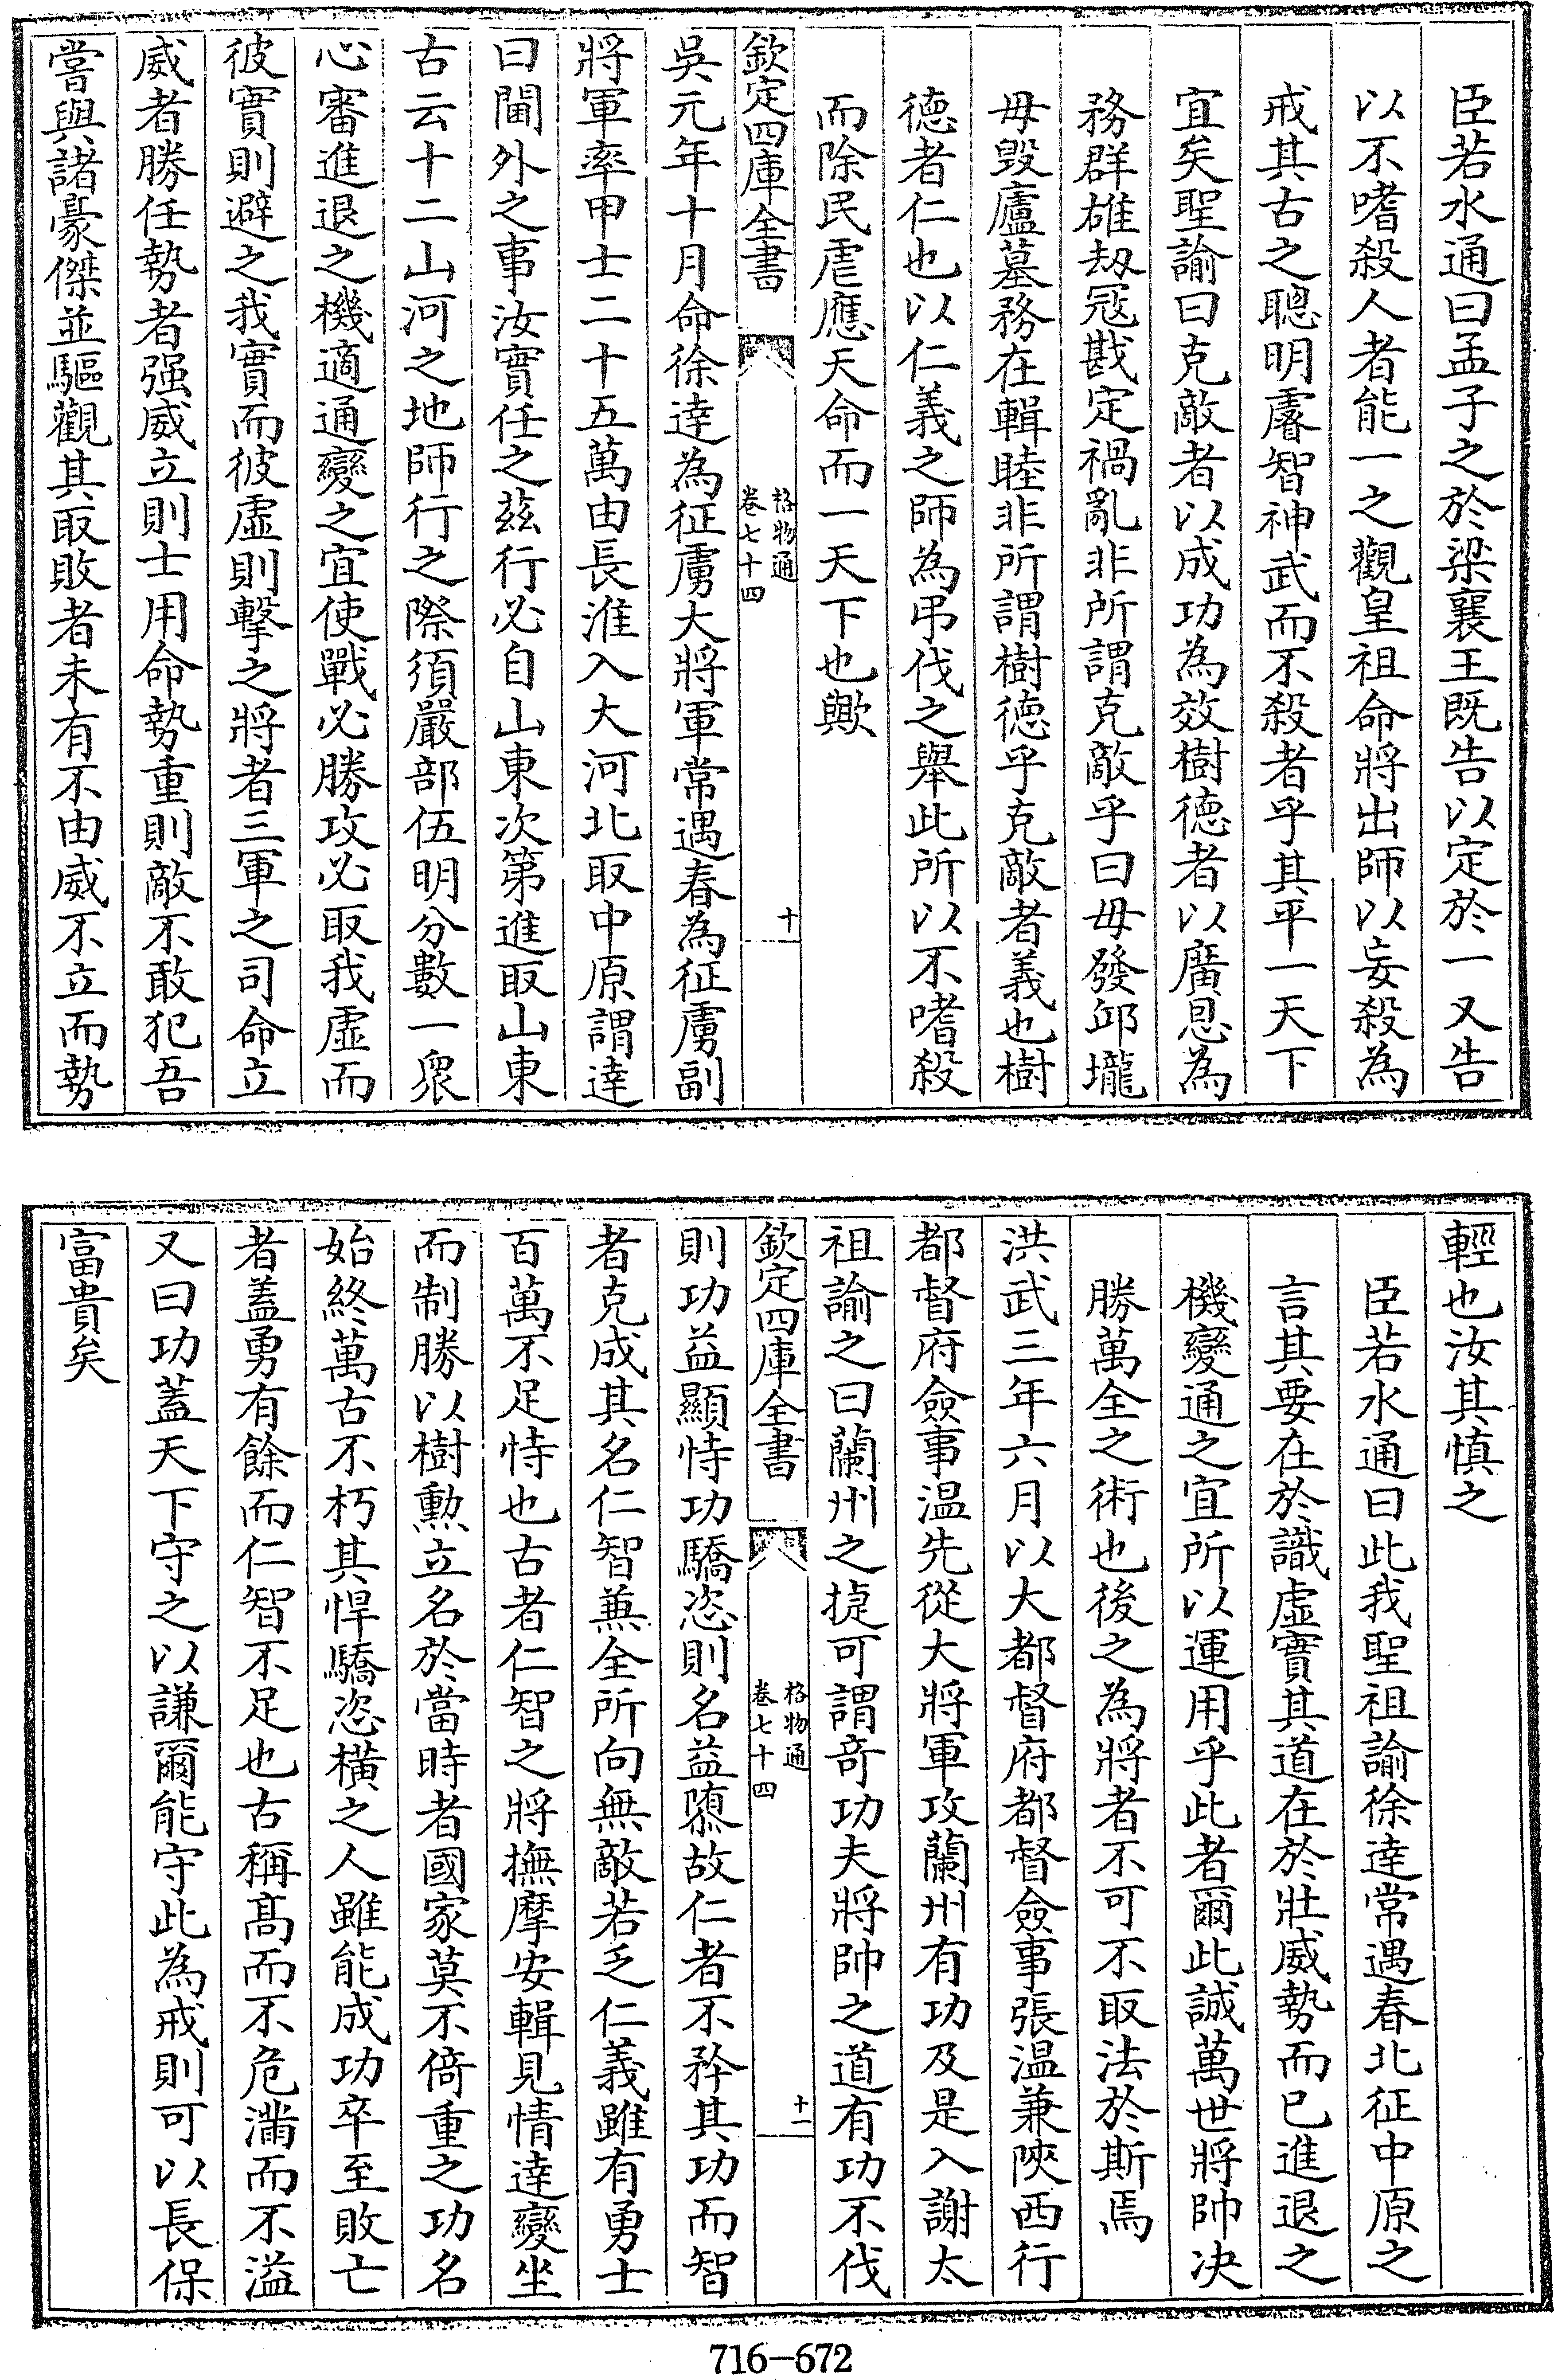 臣若水通曰孟子之於梁襄王既告以定於一又告
以不嗜殺人者能一之觀皇祖命將出師以妄殺為
戒其古之聰明睿智神武而不殺者乎其平一天下
宜矣聖諭曰克敵者以成功為效樹徳者以廣恩為
務群雄刼冦戡定禍亂非所謂克敵乎曰毋發邱壠
毋毁廬墓務在輯睦非所謂樹徳乎克敵者義也樹
徳者仁也以仁義之師為弔伐之舉此所以不嗜殺
而除民虐應天命而一天下也歟
欽定四庫全書
格物通
卷七十四
十
吳元年十月命徐達為征虜大將軍常遇春為征虜副
將軍率甲士二十五萬由長淮入大河北取中原謂達
曰閫外之事汝實任之兹行必自山東次第進取山東
古云十二山河之地師行之際須嚴部伍明分數一衆
心審進退之機適通變之宜使戰必勝攻必取我虚而
彼實則避之我實而彼虚則擊之將者三軍之司命立
威者勝任勢者强威立則士用命勢重則敵不敢犯吾
嘗與諸豪傑並驅觀其取敗者未有不由威不立而勢
輕也汝其慎之
臣若水通曰此我聖祖諭徐達常遇春北征中原之
言其要在於識虚實其道在於壯威勢而已進退之
機變通之宜所以運用乎此者爾此誠萬世將帥决
勝萬全之術也後之為將者不可不取法於斯焉
洪武三年六月以大都督府都督僉事張温兼陜西行
都督府僉事温先從大將軍攻蘭州有功及是入謝太
祖諭之曰蘭州之捷可謂竒功夫將帥之道有功不伐
欽定四庫全書
格物通
卷七十四
十一
則功益顯恃功驕恣則名益隳故仁者不矜其功而智
者克成其名仁智兼全所向無敵若乏仁義雖有勇士
百萬不足恃也古者仁智之將撫摩安輯見情達變坐
而制勝以樹勲立名於當時者國家莫不倚重之功名
始終萬古不朽其悍驕恣橫之人雖能成功卒至敗亡
者盖勇有餘而仁智不足也古稱髙而不危滿而不溢
又曰功蓋天下守之以謙爾能守此為戒則可以長保
富貴矣
716-672